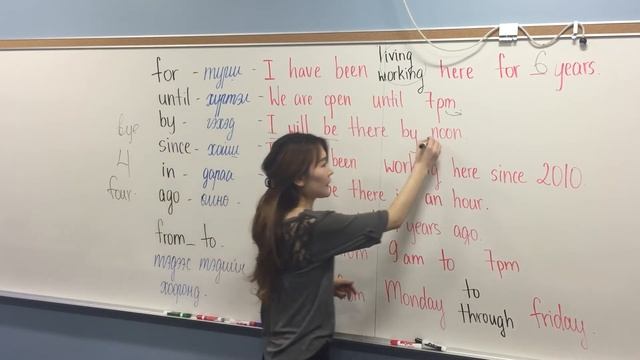 for - турш - I have been living working here for 6 years.
until - хүртэл - We are open until 7pm.
by - гэхэд - I will be there by noon
since - хойш - been working here since 2010
in - дараа be there in an hour.
ago - өмнө years ago.
from_to - 9am to 7pm
тэдээс тэдийн хооронд. Monday to through friday.
bye
4
four